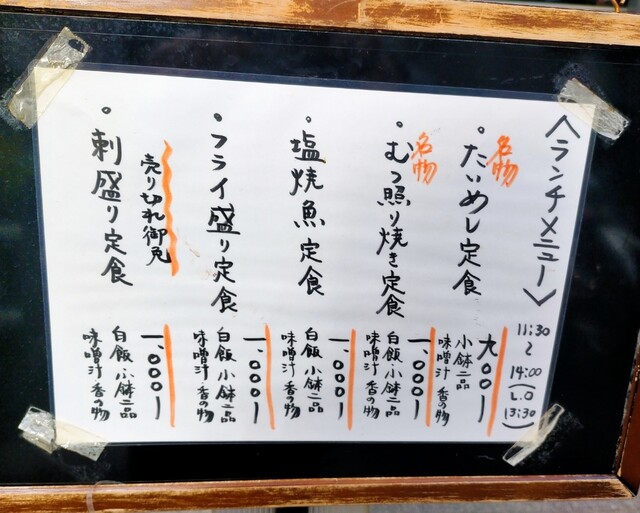 〈ランチメニュー〉
11:30
〜
14:00
(L.O
13:30)
名物
・たいめし定食
九〇〇ー
小鉢二品
味噌汁 香の物
名物
・むつ照り焼き定食
一、〇〇〇ー
白飯 小鉢二品
味噌汁 香の物
・塩焼魚定食
一、〇〇〇ー
白飯 小鉢二品
味噌汁 香の物
・フライ盛り定食
一、〇〇〇ー
白飯 小鉢二品
味噌汁 香の物
売り切れ御免
・刺盛り定食
一、〇〇〇ー
白飯 小鉢二品
味噌汁 香の物